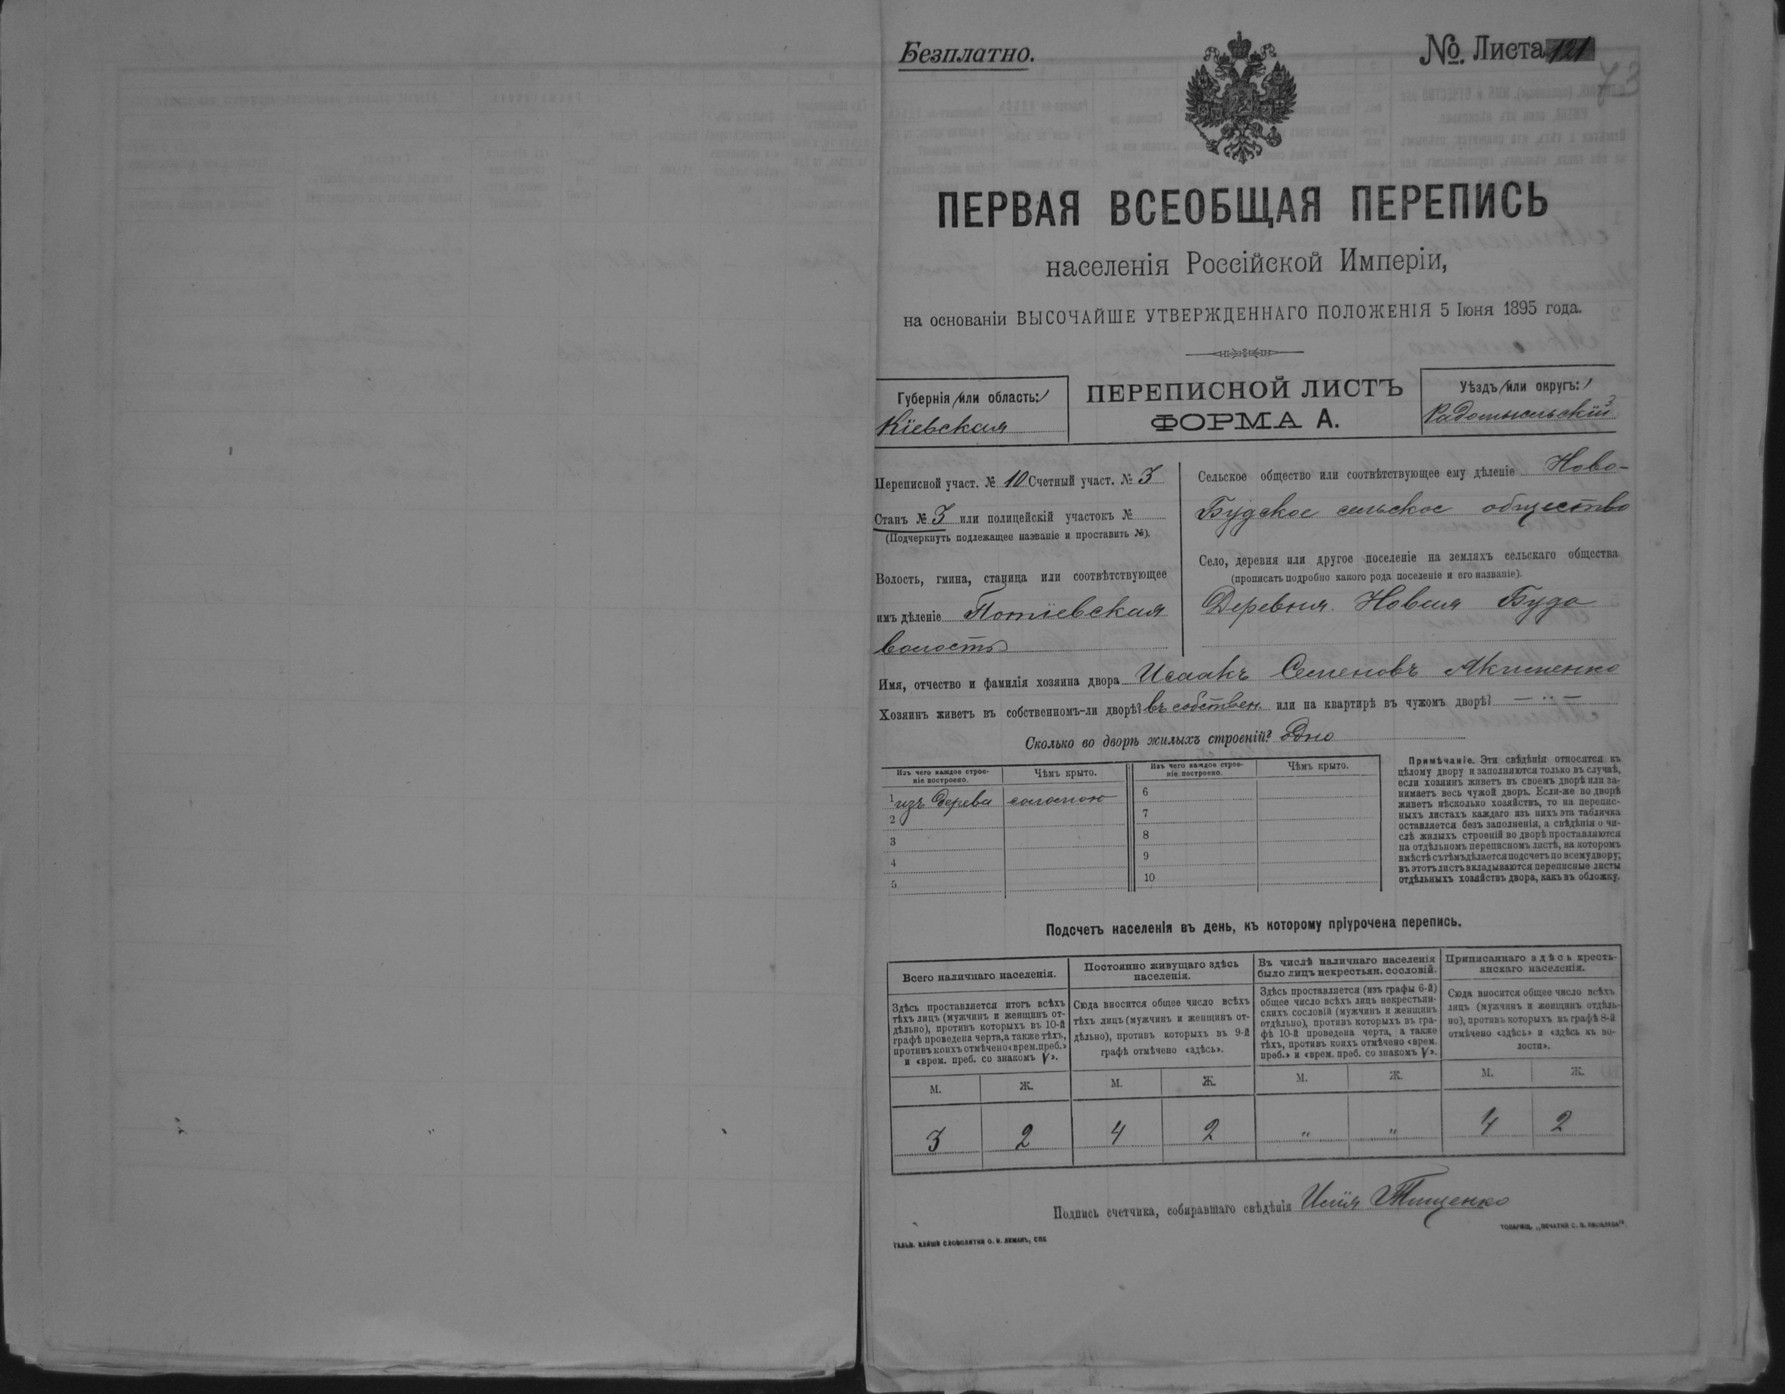 Безплатно.
№ Листа 121
73
ПЕРВАЯ ВСЕОБЩАЯ ПЕРЕПИСЬ
населенія Россійской Имперіи,
на основаніи ВЫСОЧАЙШЕ УТВЕРЖДЕННАГО ПОЛОЖЕНІЯ 5 Іюня 1895 года.
Губернія (или область:)
Кіевская
ПЕРЕПИСНОЙ ЛИСТЪ
ФОРМА А.
Уѣздъ (или округъ:)
Радомысльскій
Переписной участ. № 10 Счетный участ. № 3
Станъ № 3 или полицейскій участокъ №
(Подчеркнуть подлежащее названіе и проставить №).
Волость, гмина, станица или соотвѣтствующее
имъ дѣленіе Потіевская
волость
Сельское общество или соотвѣтствующее ему дѣленіе Ново-
Будское сельское общество
Село, деревня или другое поселеніе на земляхъ сельскаго общества
(прописать подробно какого рода поселеніе и его названіе).
Деревня Новая Буда
Имя, отчество и фамилія хозяина двора Исаакъ Семеновъ Якименко
Хозяинъ живетъ въ собственномъ-ли дворѣ? въ собствен. или на квартирѣ въ чужомъ дворѣ? — „ —
Сколько во дворѣ жилыхъ строеній? Одно
Изъ чего каждое строе-
ніе построено.
Чѣмъ крыто.
Изъ чего каждое строе-
ніе построено.
Чѣмъ крыто.
1 изъ дерева соломою
2
3
4
5
6
7
8
9
10
Примѣчаніе. Эти свѣдѣнія относятся къ
цѣлому двору и заполняются только въ случаѣ,
если хозяинъ живетъ въ своемъ дворѣ или за-
нимаетъ весь чужой дворъ. Если-же во дворѣ
живетъ нѣсколько хозяйствъ, то на перепис-
ныхъ листахъ каждаго изъ нихъ эта табличка
оставляется безъ заполненія, а свѣдѣнія о чи-
слѣ жилыхъ строеній во дворѣ проставляются
на отдѣльномъ переписномъ листѣ, на которомъ
вмѣстѣ съ тѣмъ дѣлается подсчетъ по всему двору;
въ этотъ листъ вкладываются переписные листы
отдѣльныхъ хозяйствъ двора, какъ въ обложку.
Подсчетъ населенія въ день, къ которому пріурочена перепись.
Всего наличнаго населенія.
Здѣсь проставляется итогъ всѣхъ
тѣхъ лицъ (мужчинъ и женщинъ от-
дѣльно), противъ которыхъ въ 10-й
графѣ проведена черта, а также тѣхъ,
противъ коихъ отмѣчено «врем. преб.»
и «врем. преб. со знакомъ V».
Постоянно живущаго здѣсь
населенія.
Сюда вносится общее число всѣхъ
тѣхъ лицъ (мужчинъ и женщинъ от-
дѣльно), противъ которыхъ въ 9-й
графѣ отмѣчено «здѣсь».
Въ числѣ наличнаго населенія
было лицъ некрестьян. сословій.
Здѣсь проставляется (изъ графы 6-й)
общее число всѣхъ лицъ некрестьян-
скихъ сословій (мужчинъ и женщинъ
отдѣльно), противъ которыхъ въ гра-
фѣ 10-й проведена черта, а также
тѣхъ, противъ коихъ отмѣчено «врем.
преб.» и «врем. преб. со знакомъ V».
Приписаннаго здѣсь кресть-
анскаго населенія.
Сюда вносится общее число всѣхъ
лицъ (мужчинъ и женщинъ отдѣль-
но), противъ которыхъ въ графѣ 8-й
отмѣчено «здѣсь» и «здѣсь въ во-
лости».
М. Ж. М. Ж. М. Ж. М. Ж.
3 2 4 2 „ „ 4 2
Подпись счетчика, собиравшаго свѣдѣнія Илія Тищенко
ТОВАРИЩ. „ПЕЧАТНЯ С. П. ЯКОВЛЕВА“.